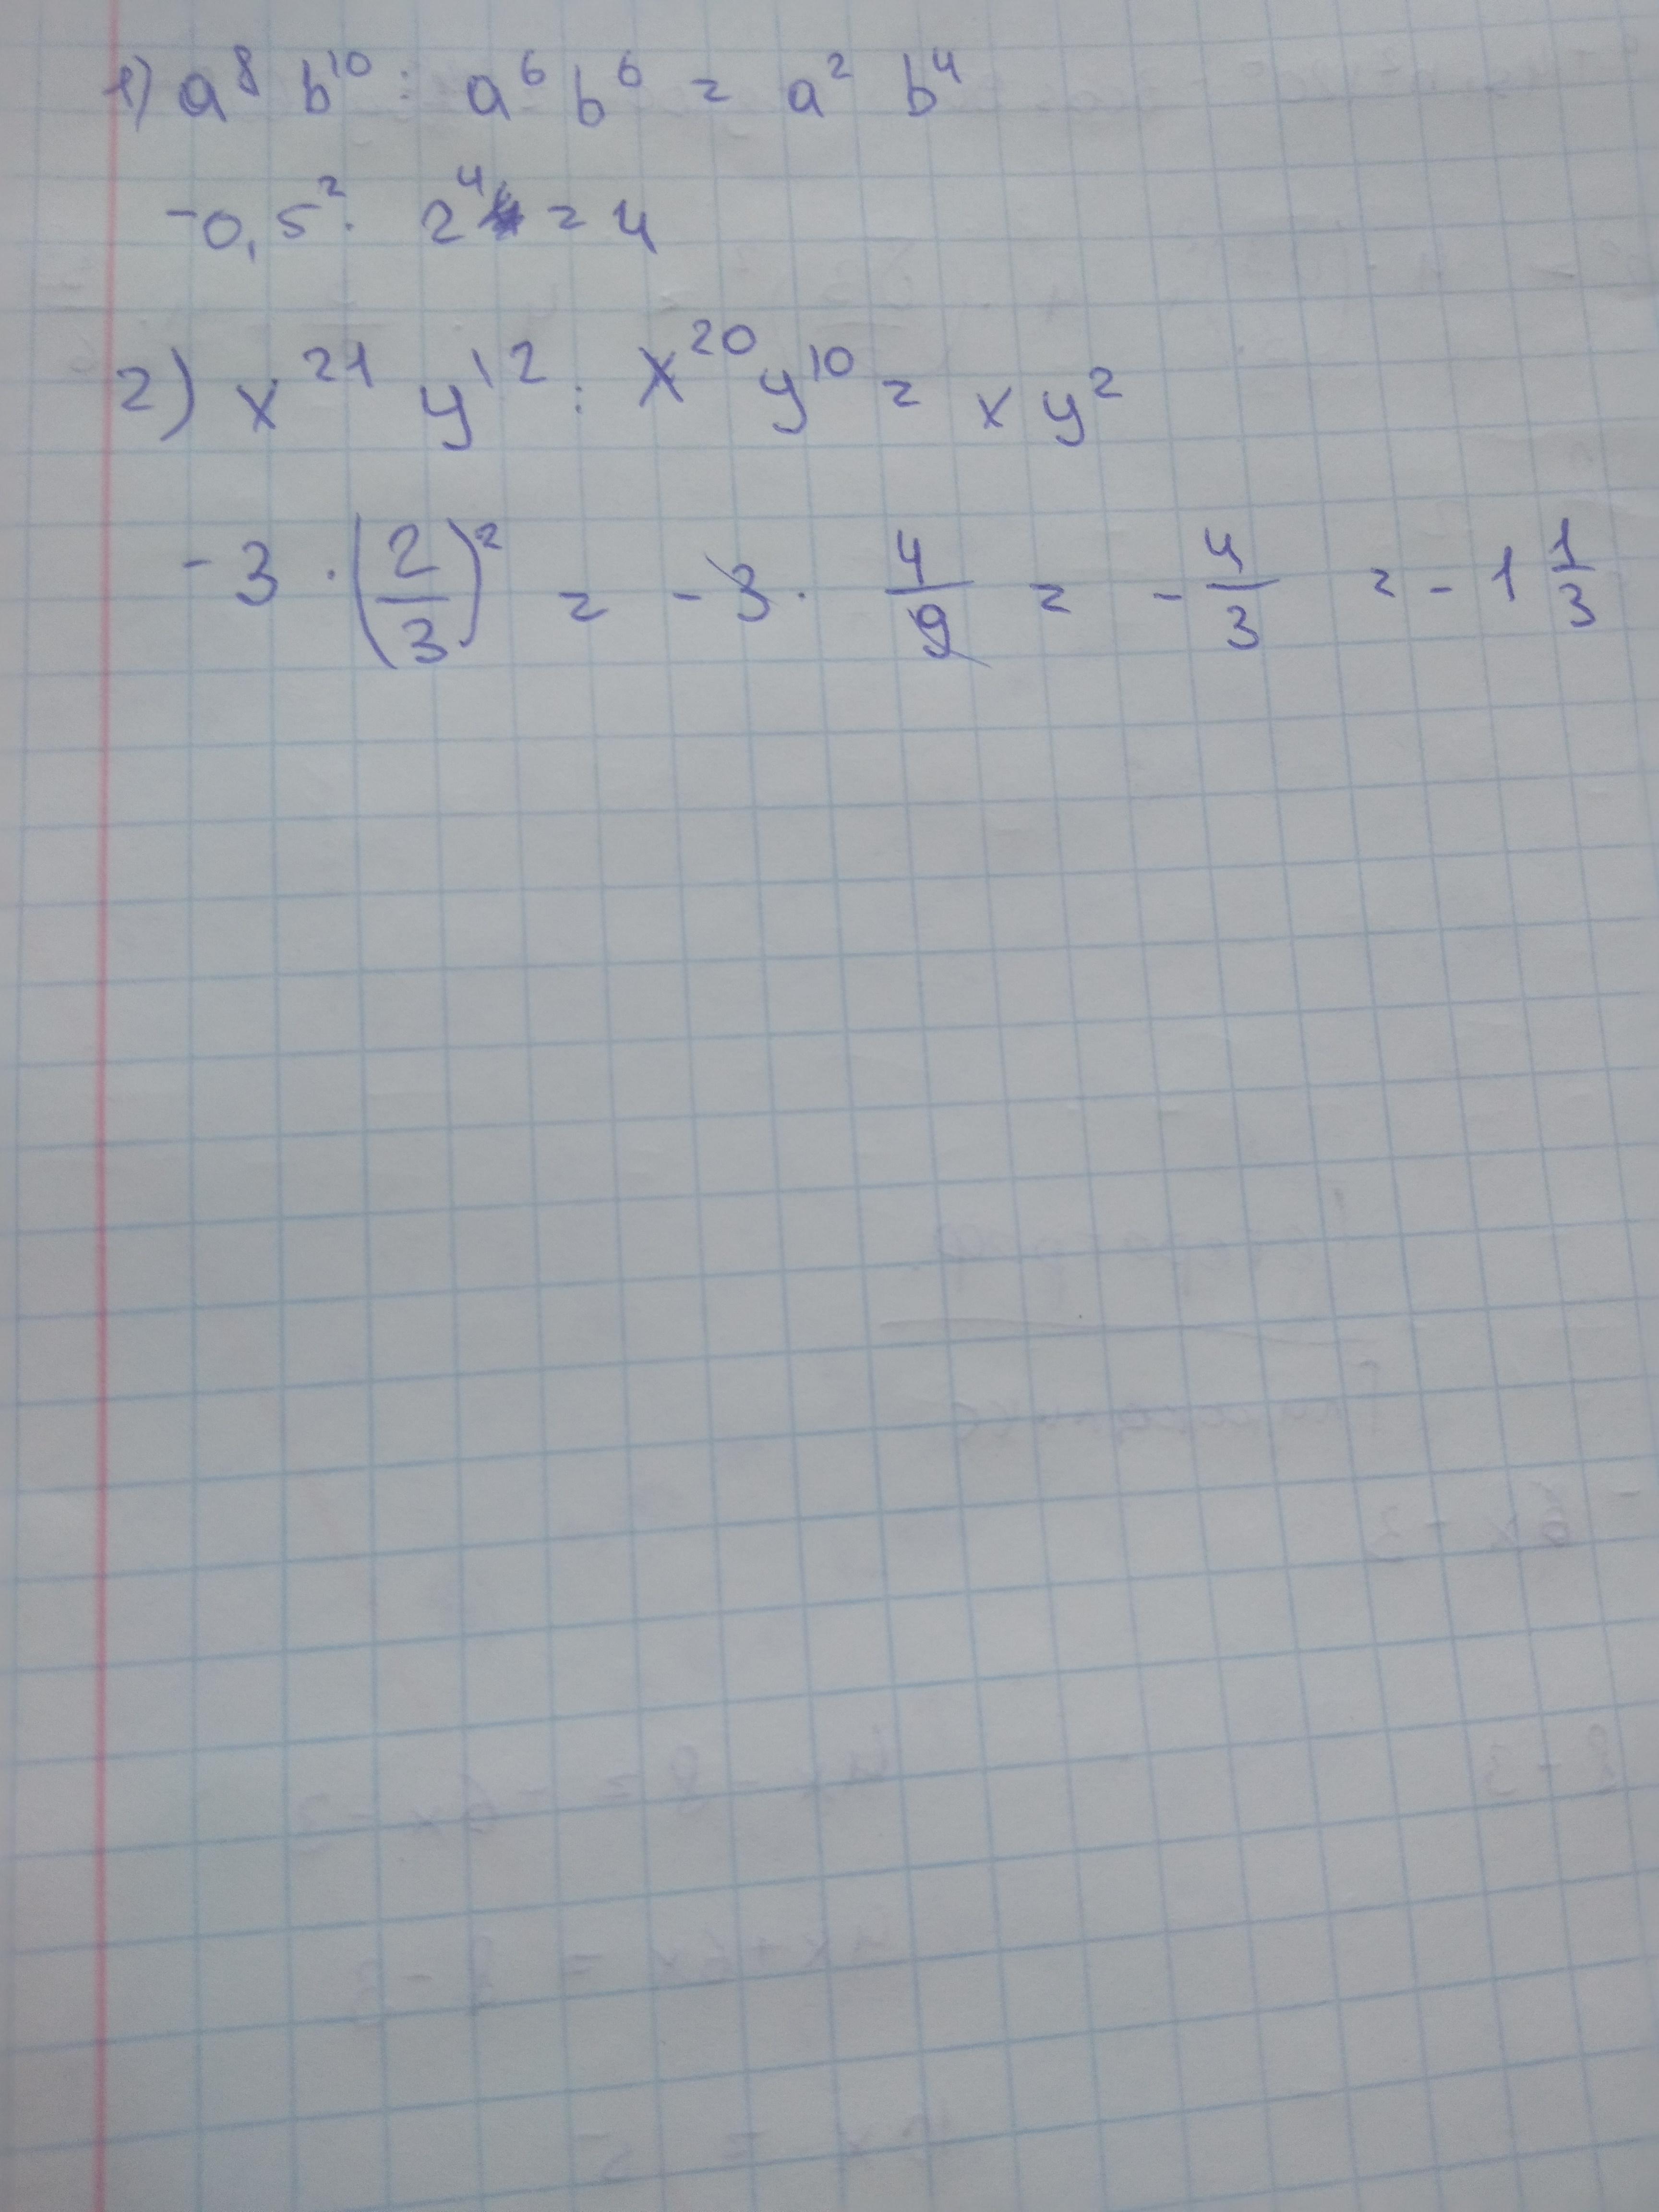 1) a⁸ b¹⁰ : a⁶ b⁶ = a² b⁴
-0,5² · 2⁴ = 4
2) x²¹ y¹² : x²⁰ y¹⁰ = x y²
-3 · (2/3)² = -3 · 4/9 = -4/3 = -1 1/3